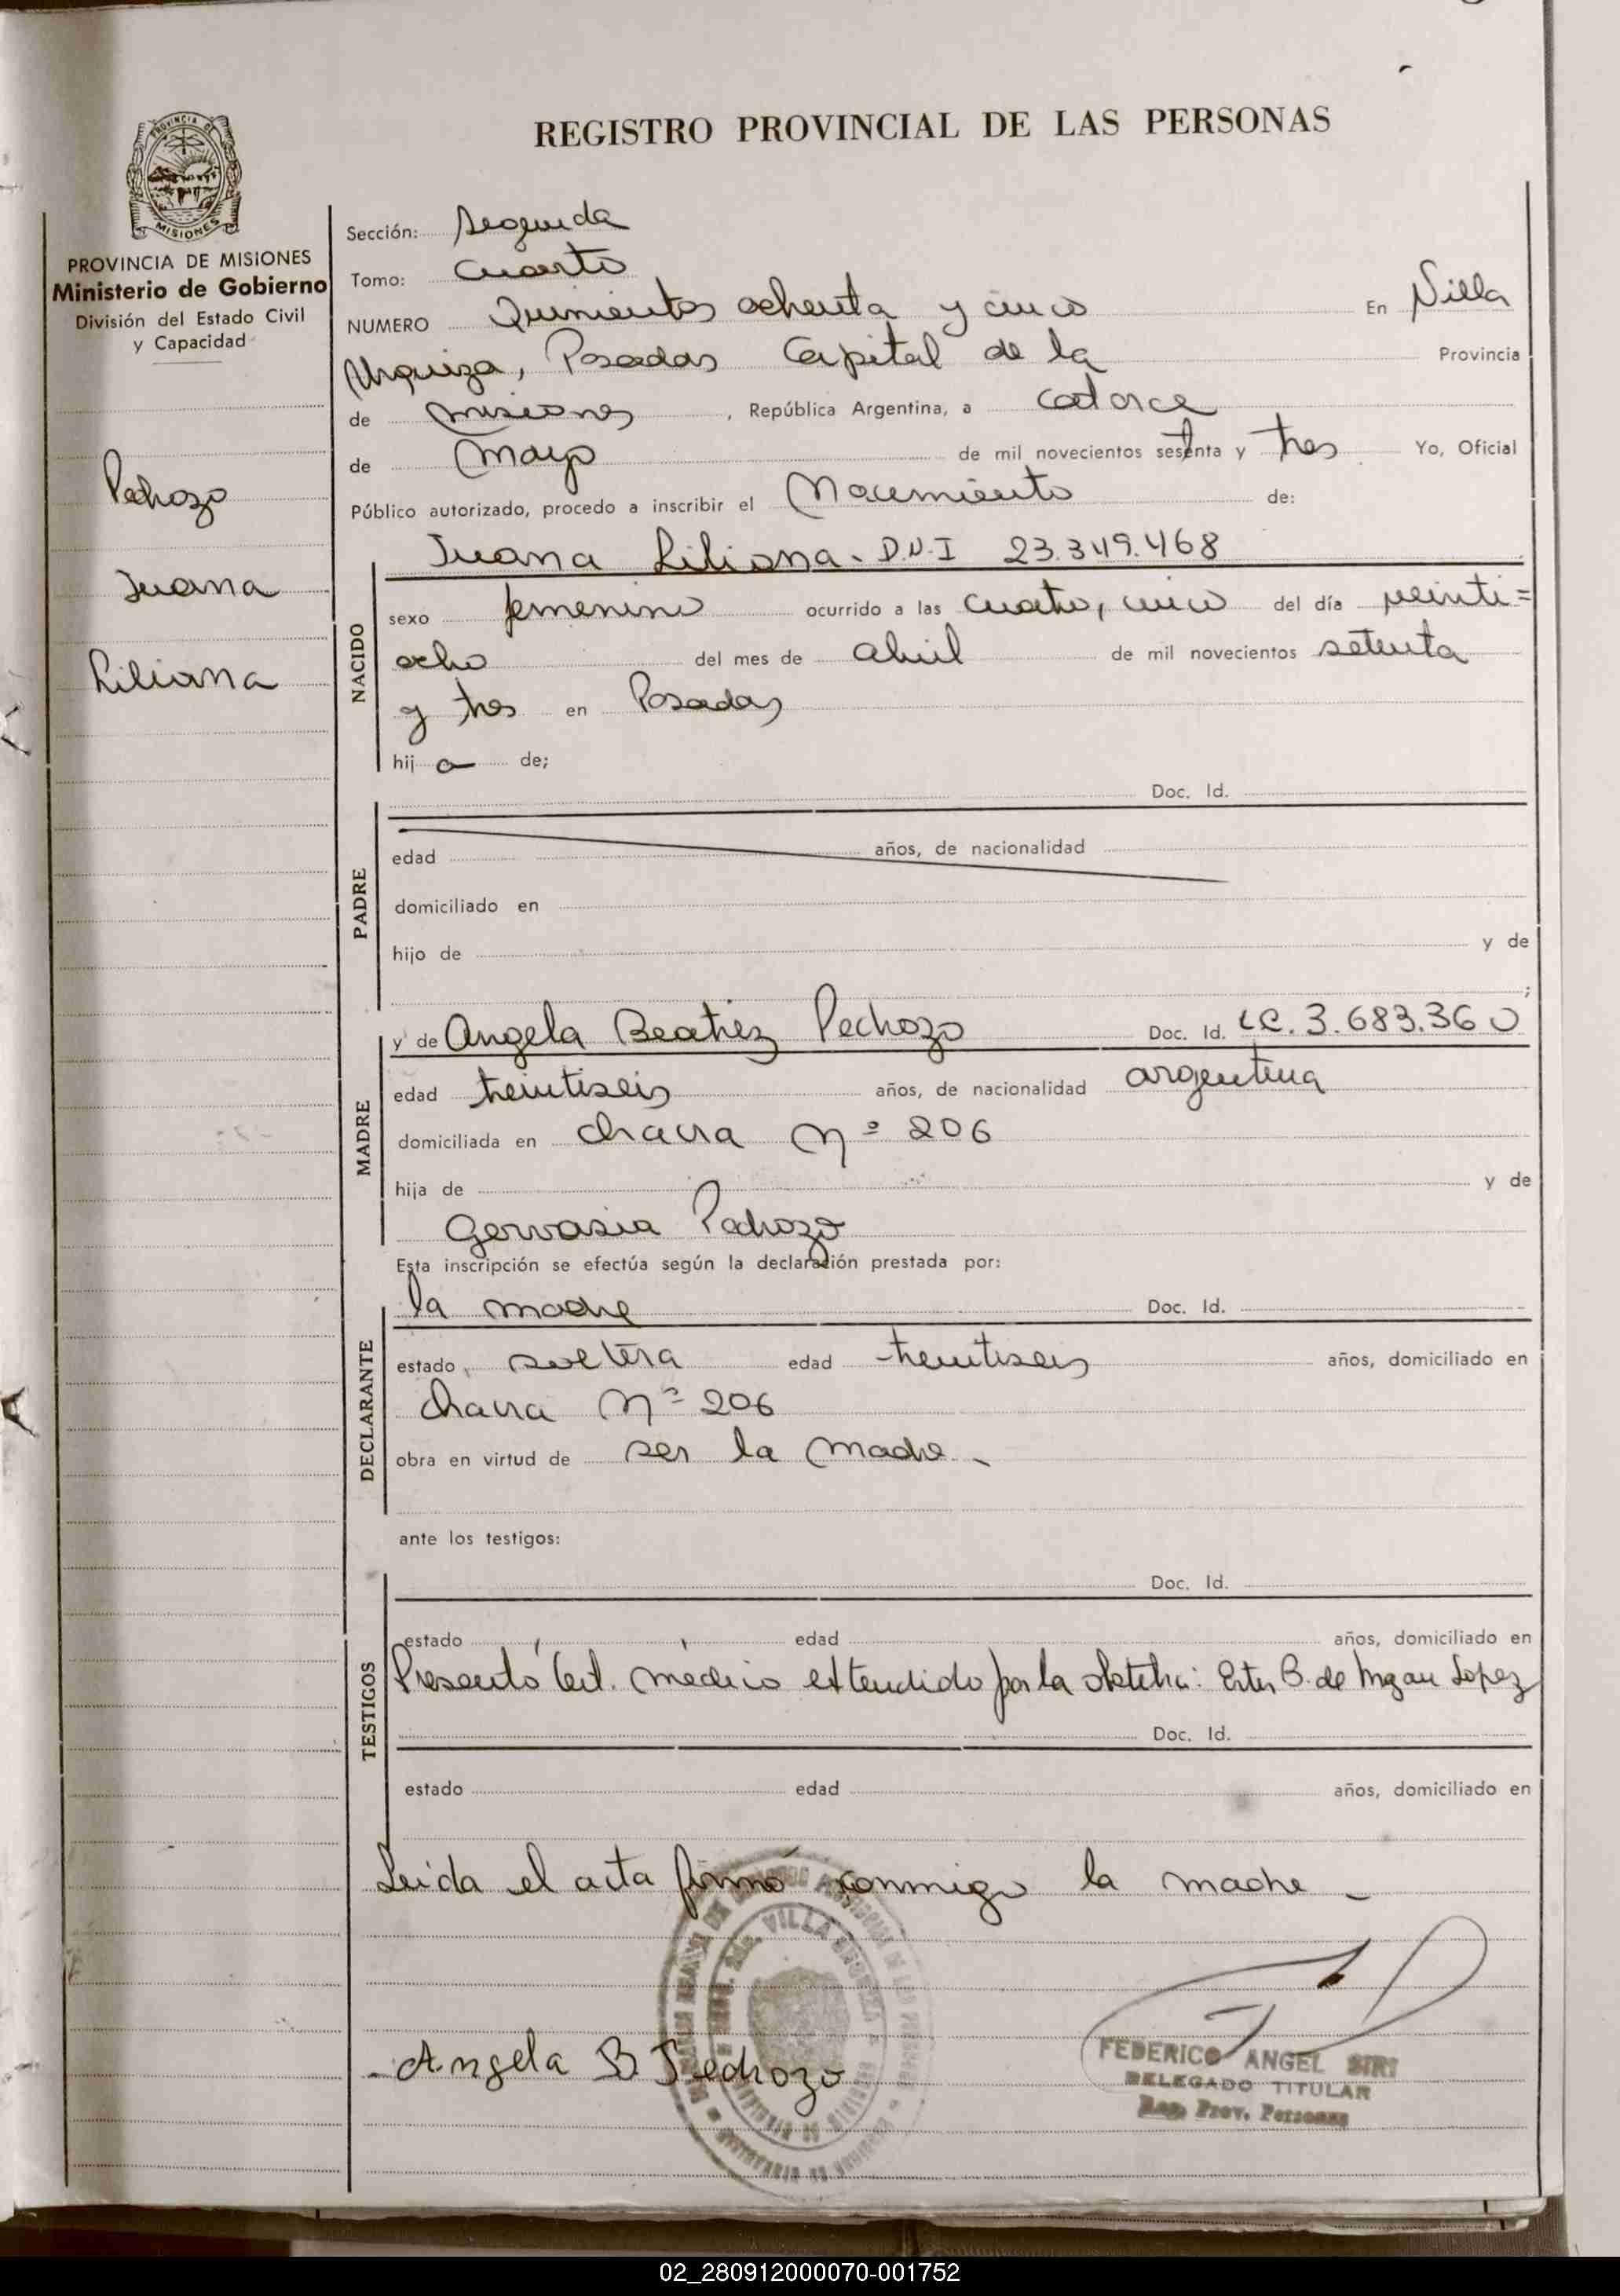 REGISTRO PROVINCIAL DE LAS PERSONAS
PROVINCIA DE
MISIONES
PROVINCIA DE MISIONES
Ministerio de Gobierno
División del Estado Civil
y Capacidad
Pedrozo
Juana
Liliana
Sección: Segunda
Tomo: Cuarto
NUMERO Quinientos ochenta y cinco En Villa
Urquiza, Posadas Capital de la Provincia
de misiones, República Argentina, a catorce
de Mayo de mil novecientos setenta y tres Yo, Oficial
Público autorizado, procedo a inscribir el Nacimiento de:
NACIDO
Juana Liliana - D.N.I 23.349.468
sexo femenino ocurrido a las cuatro, cinco del día veinti=
ocho del mes de abril de mil novecientos setenta
y tres en Posadas
hij a de;
PADRE
Doc. Id.
edad años, de nacionalidad
domiciliado en
hijo de y de
;
MADRE
y de Angela Beatriz Pedrozo Doc. Id. LC. 3.683.360
edad treintiseis años, de nacionalidad argentina
domiciliada en chacra Nº 206
hija de y de
Gervasia Pedrozo
Esta inscripción se efectúa según la declaración prestada por:
DECLARANTE
la madre Doc. Id.
estado soltera edad treintiseis años, domiciliado en
chacra Nº 206
obra en virtud de ser la madre -
ante los testigos:
TESTIGOS
Doc. Id.
estado edad años, domiciliado en
Presentó Cert. médico extendido por la obstetra: Ester B. de López
Doc. Id.
estado edad años, domiciliado en
Leida el acta firmó conmigo la madre -
VILLA URQUIZA
Angela B Pedrozo
FEDERICO ANGEL SIRI
DELEGADO TITULAR
Reg. Prov. Personas
02_280912000070-001752